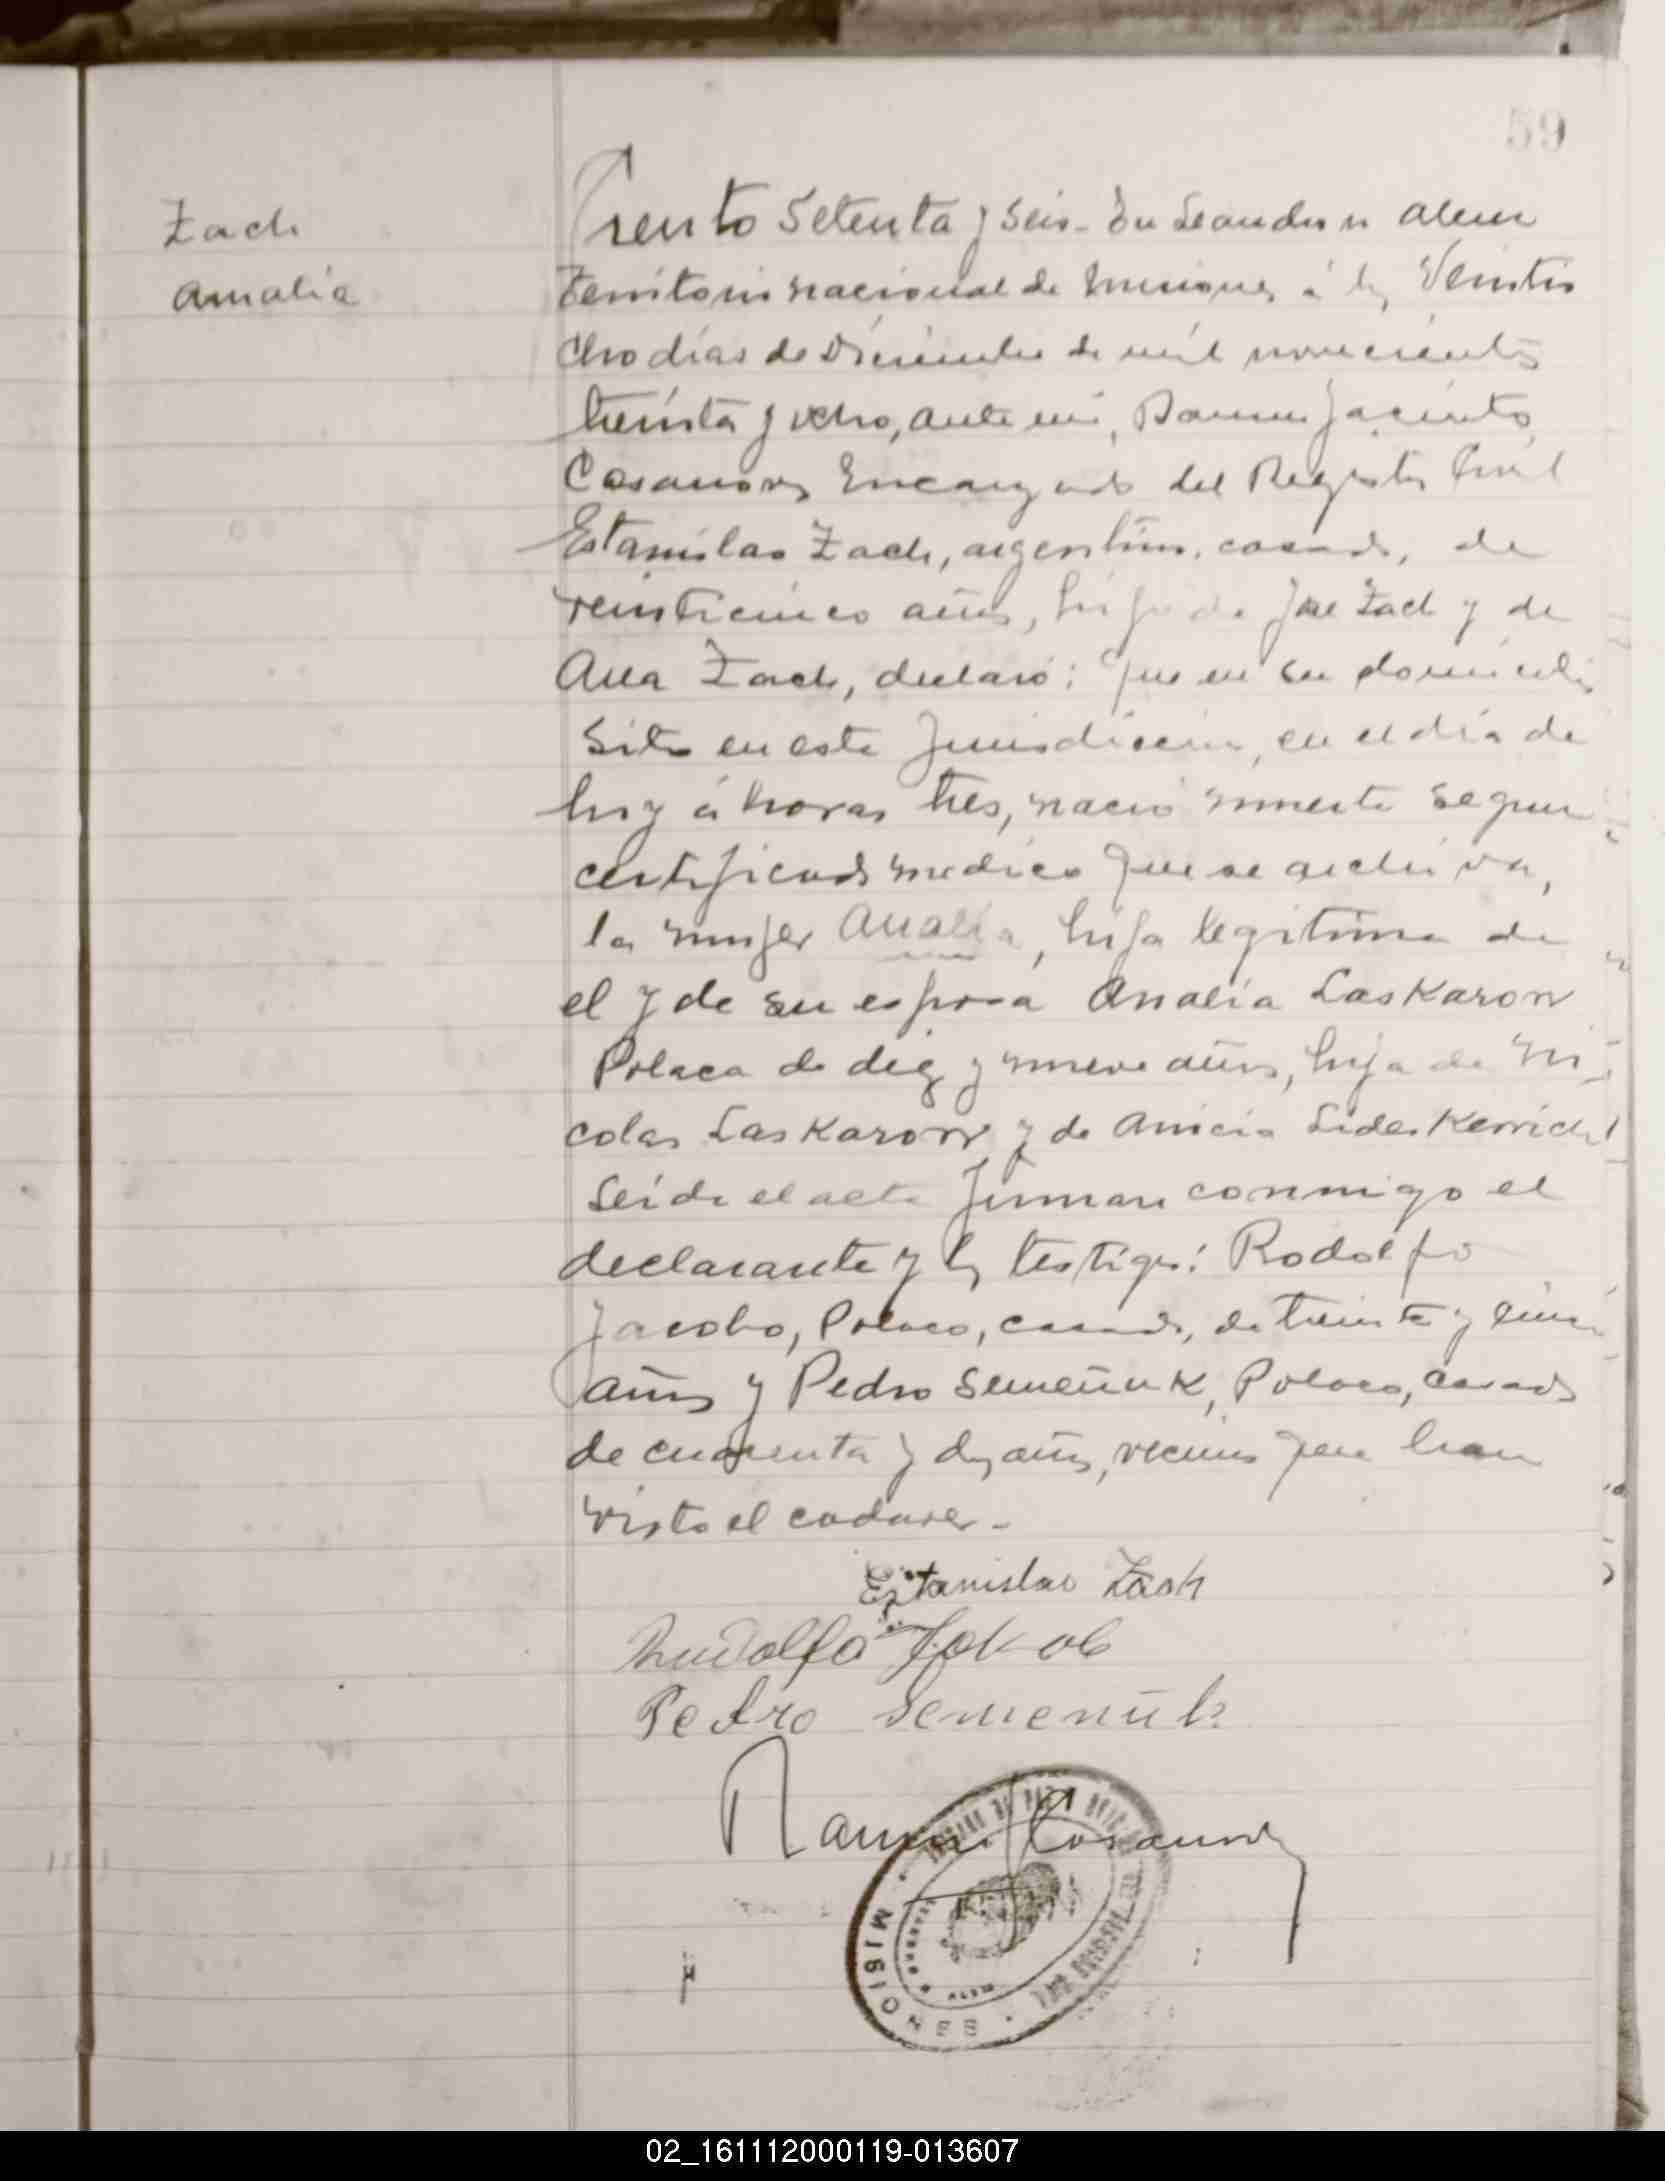 59
Zach
Amalia
Ciento Setenta y seis - En Leandro N Alem
Territorio nacional de Misiones, á los Veintio
cho días de Diciembre de mil novecientos
treinta y ocho, ante mi, Ramon Jacinto
Casanova Encargado del Registro Civil
Estanislao Zach, argentino, casado, de
veinticinco años, hijo de José Zach y de
Ana Zach, declaró: Que en su domicilio
sito en esta Jurisdiccion, en el día de
hoy á horas tres, nació muerta segun
certificado medico que se archiva,
la mujer Amalia, hija legitima de
el y de su esposa Analia Laskarow
Polaca de diez y nueve años, hija de Ni
colas Laskarow y de Anicia
Leida el acta firman conmigo el
declarante y los testigos: Rodolfo
Jacobo, Polaco, casado, de treinta y cinco
años y Pedro Semeñuk, Polaco, casado
de cuarenta y dos años, vecinos que han
visto el cadaver -
Estanislao Zach
Rudolfo Jakob
Pedro Semeñuk
Ramon J Casanova
MISIONES
02_161112000119-013607